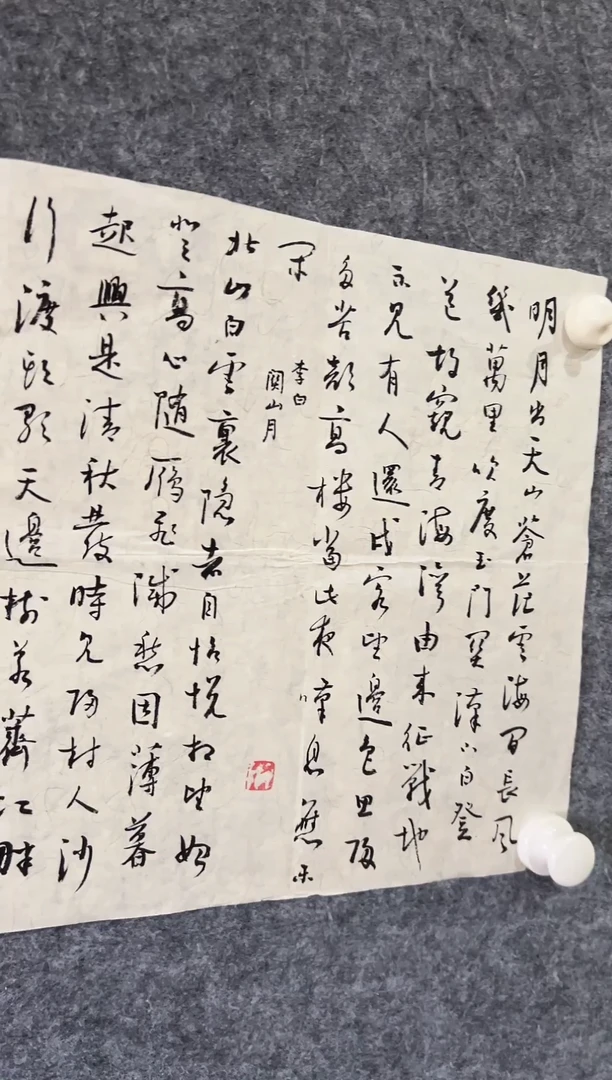 明月出天山蒼茫雲海間長風
幾萬里吹度玉門關漢下白登
道胡窺青海灣由來征戰地
不見有人還戍客望邊色思歸
多苦顏高樓當此夜嘆息應未
閑
李白
關山月
北山白雲裏隱者自怡悅相望始
登高心隨鴈飛滅愁因薄暮
起興是清秋發時見歸村人沙
行渡頭歇天邊樹若薺江畔